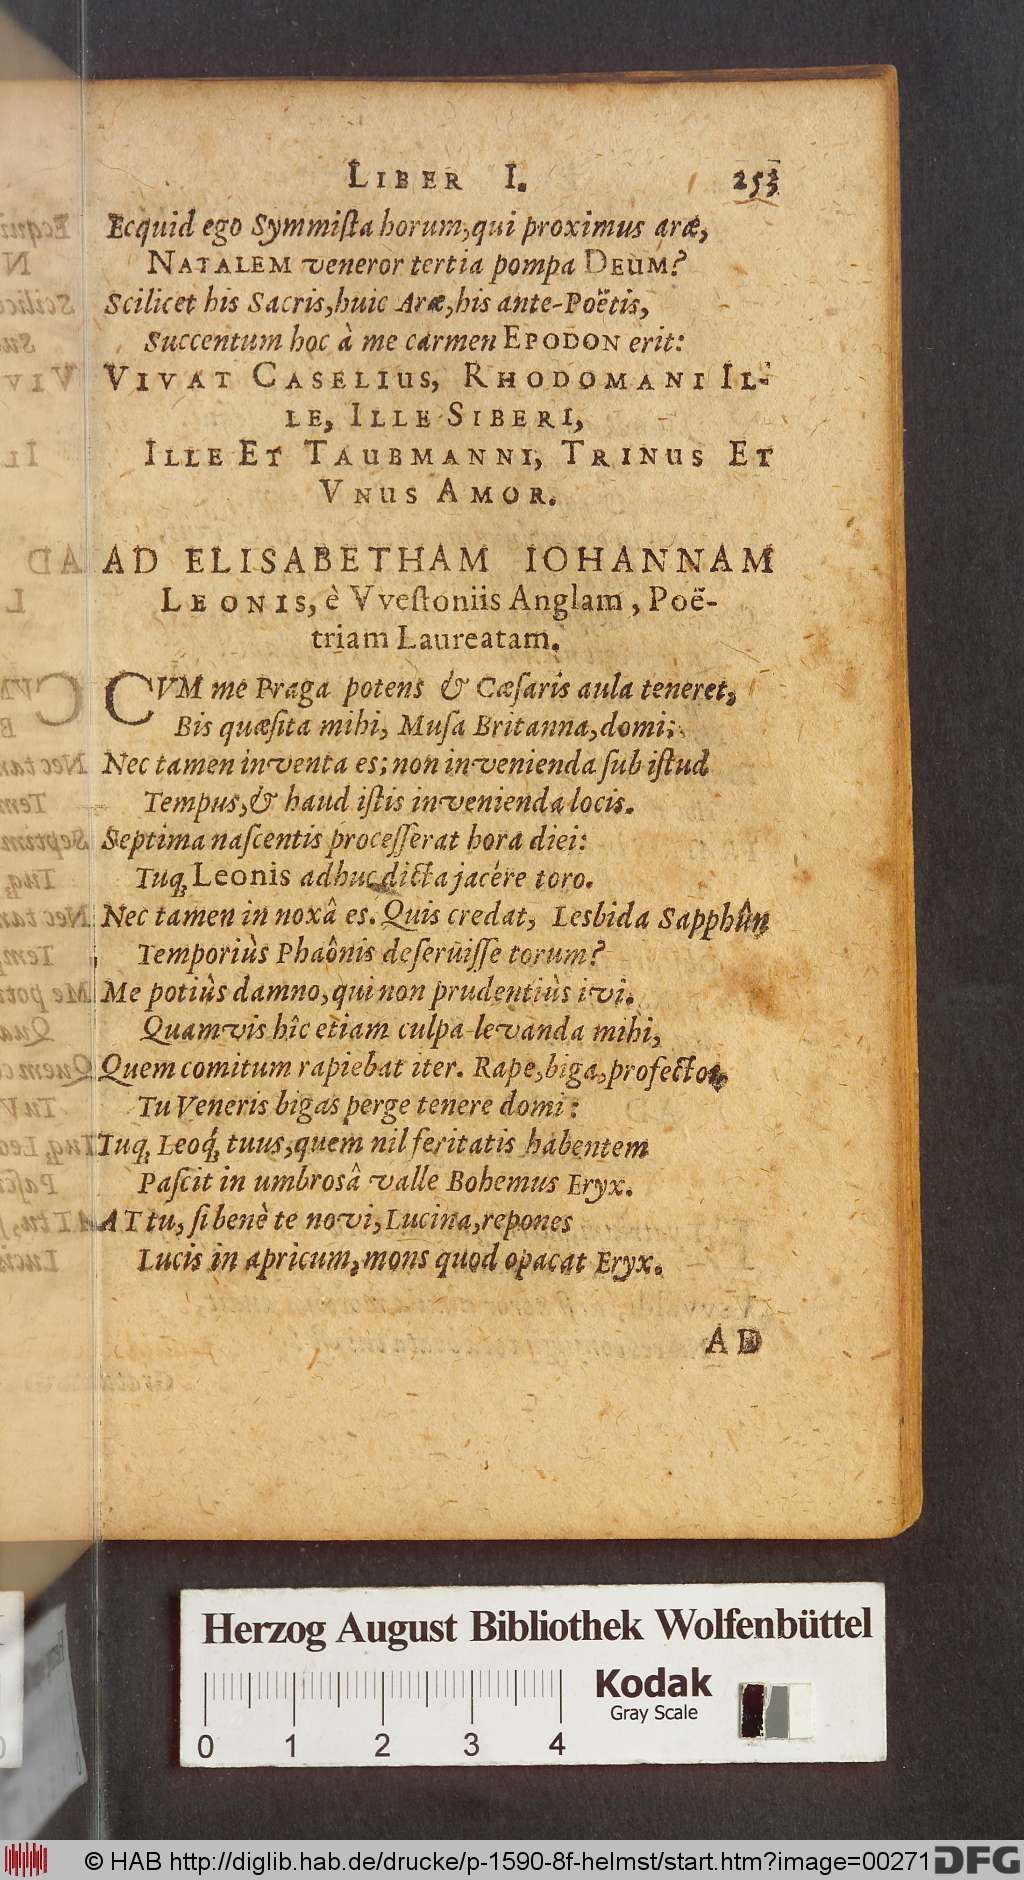 LIBER I. 253
Ecquid ego Symmiſta horum, qui proximus aræ,
NATALEM veneror tertia pompa DEUM?
Scilicet his Sacris, huic Aræ, his ante-Poëtis,
Succentum hoc à me carmen EPODON erit:
VIVAT CASELIUS, RHODOMANI IL-
LE, ILLE SIBERI,
ILLE ET TAUBMANNI, TRINUS ET
VNUS AMOR.
AD ELISABETHAM IOHANNAM
LEONIS, è Vveſtoniis Anglam, Poë-
triam Laureatam.
CVM me Praga potens & Cæſaris aula teneret,
Bis quæſita mihi, Muſa Britanna, domi;
Nec tamen inventa es; non invenienda ſub iſtud
Tempus, & haud iſtis invenienda locis.
Septima naſcentis proceſſerat hora diei:
Tuq́; Leonis adhuc dicta jacére toro.
Nec tamen in noxâ es. Quis credat, Lesbida Sapphûn
Temporiùs Phaônis deſeruiſſe torum?
Me potiùs damno, qui non prudentiùs ivi.
Quamvis hîc etiam culpa levanda mihi,
Quem comitum rapiebat iter. Rape, biga, profectos,
Tu Veneris bigas perge tenere domi:
Tuq́; Leoq́; tuus, quem nil feritatis habentem
Paſcit in umbrosâ valle Bohemus Eryx.
AT tu, ſi benè te novi, Lucina, repones
Lucis in apricum, mons quod opacat Eryx.
AD
Herzog August Bibliothek Wolfenbüttel
Kodak
Gray Scale
0 1 2 3 4
© HAB http://diglib.hab.de/drucke/p-1590-8f-helmst/start.htm?image=00271 DFG